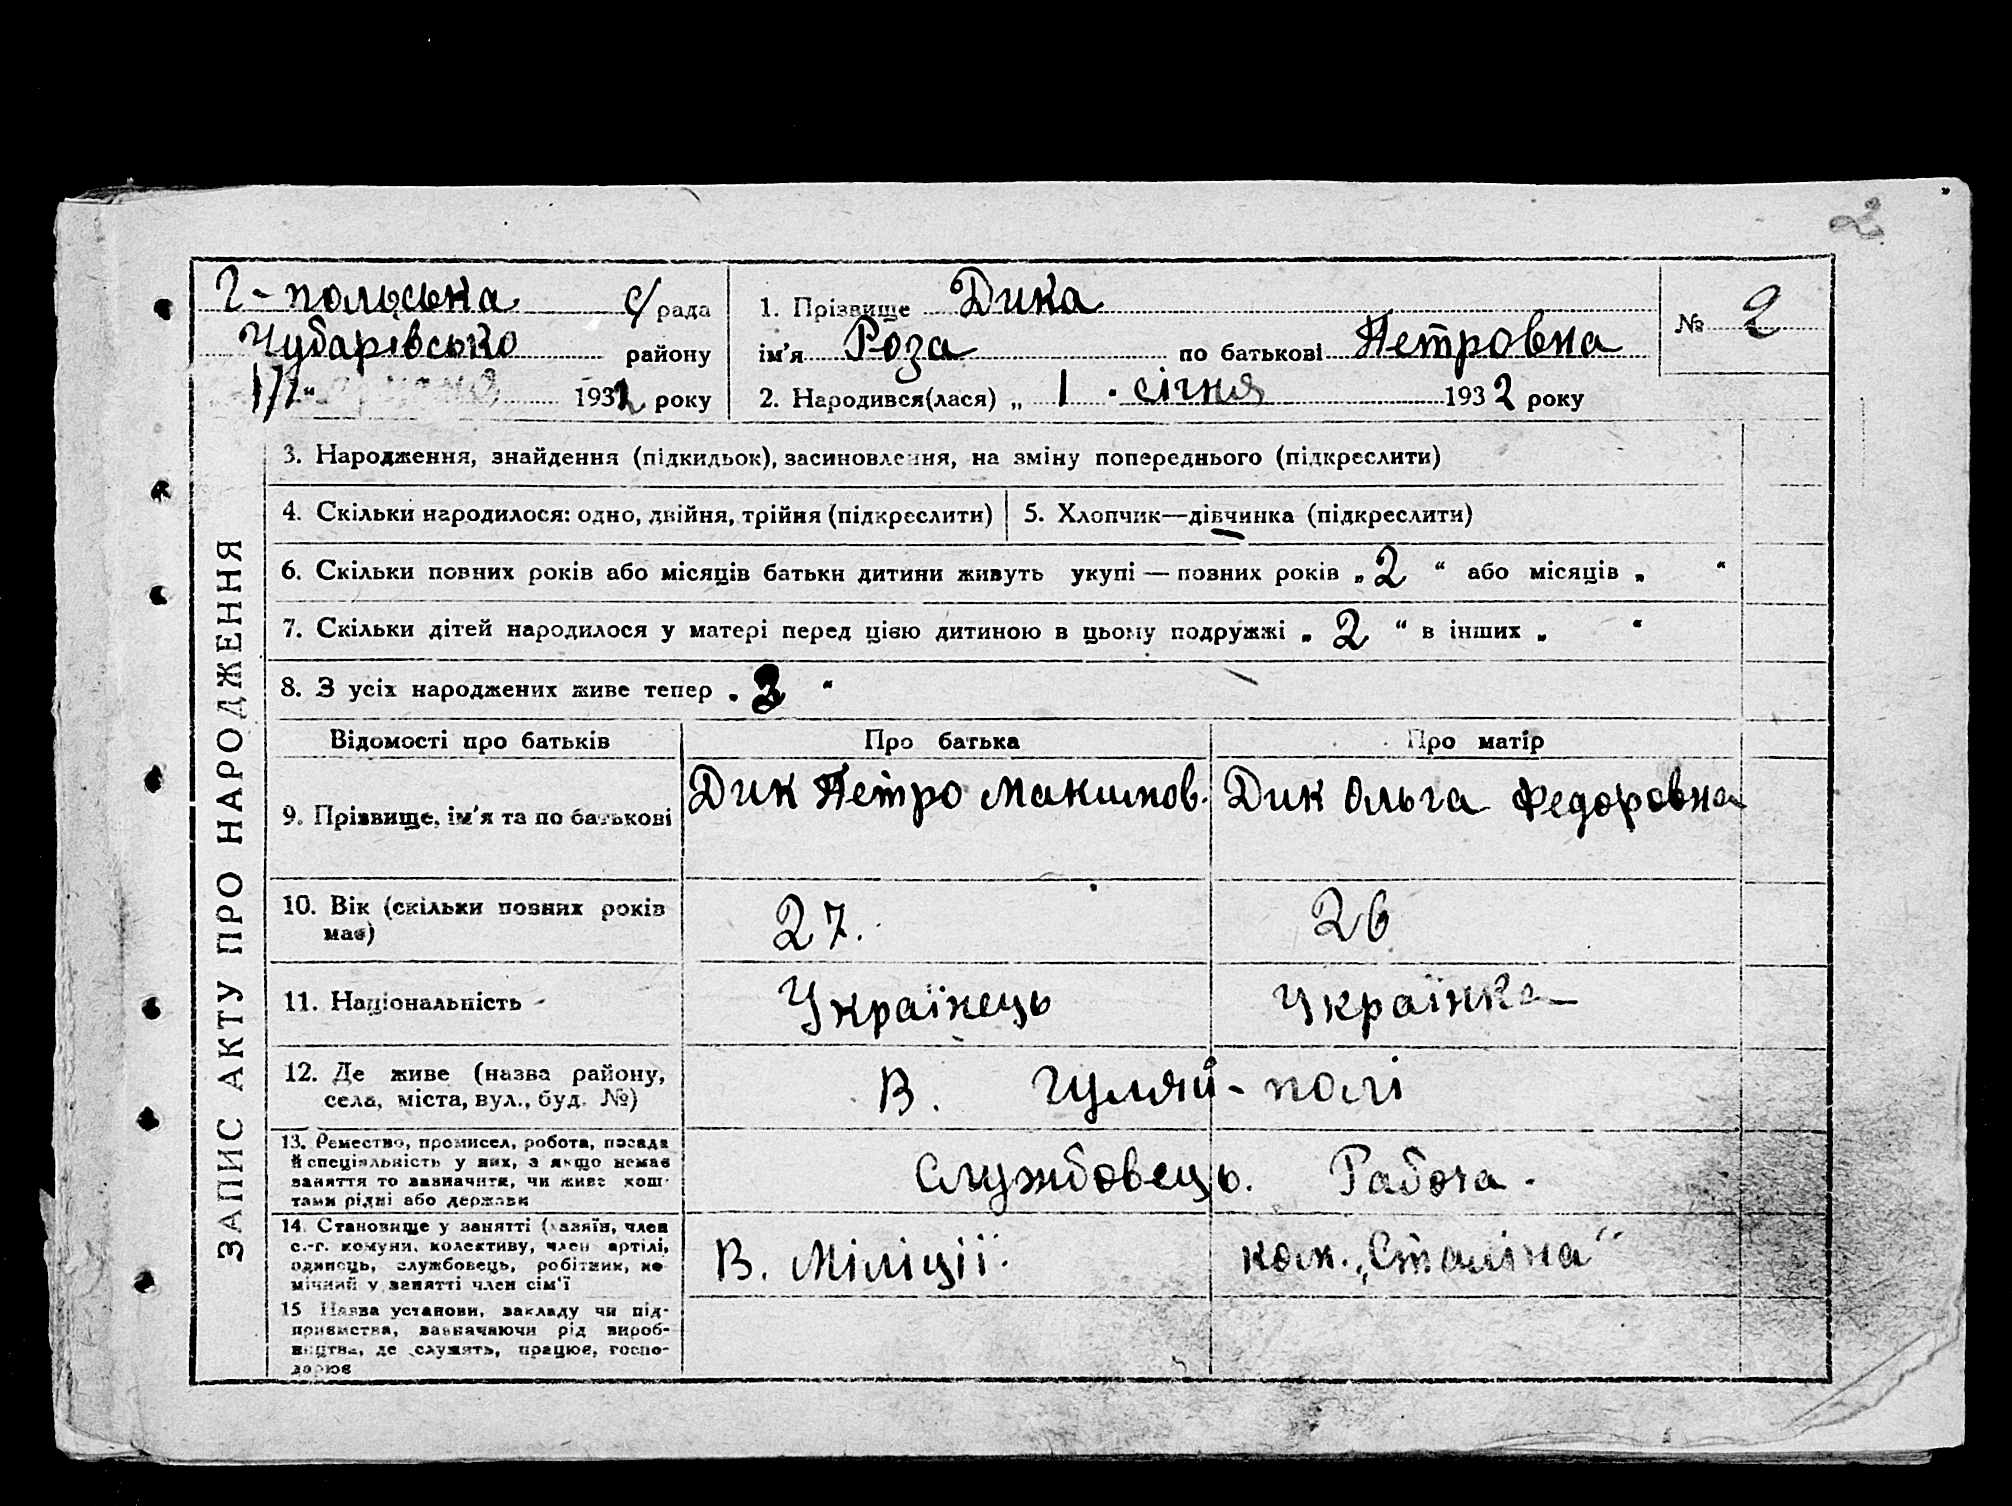 2
Г-польська с/рада
Чубарівсько району
1/I 1932 року
1. Прізвище Дика
ім'я Роза по батькові Петровна
№ 2
2. Народився(лася) „ 1 . січня 1932 року
ЗАПИС АКТУ ПРО НАРОДЖЕННЯ
3. Народження, знайдення (підкидьок), засиновлення, на зміну попереднього (підкреслити)
4. Скільки народилося: одно, двійня, трійня (підкреслити)
5. Хлопчик—дівчинка (підкреслити)
6. Скільки повних років або місяців батьки дитини живуть укупі — повних років „ 2 “ або місяців „ “
7. Скільки дітей народилося у матері перед цією дитиною в цьому подружжі „ 2 “ в інших „ “
8. З усіх народжених живе тепер „ 3 “
Відомості про батьків
Про батька
Про матір
9. Прізвище, ім'я та по батькові
Дик Петро Максимов.
Дик Ольга Федоровна
10. Вік (скільки повних років
має)
27.
26
11. Національність
Українець
Українка
12. Де живе (назва району,
села, міста, вул., буд. №)
В. Гуляй-полі
13. Ремество, промисел, робота, посада
й спеціяльність у них, а якщо немає
заняття то зазначити, чи живе кош-
тами рідні або держави
Службовець.
Рабоча.
14. Становище у занятті (хазяїн, член
с.-г. комуни, колективу, член артілі,
одинець, службовець, робітник, по-
мічний у занятті член сім'ї
В. Міліції.
ком. „Сталіна“
15 Назва установи, закладу чи під-
приємства, зазначаючи рід вироб-
ництва, де служить, працює, госпо-
дарює